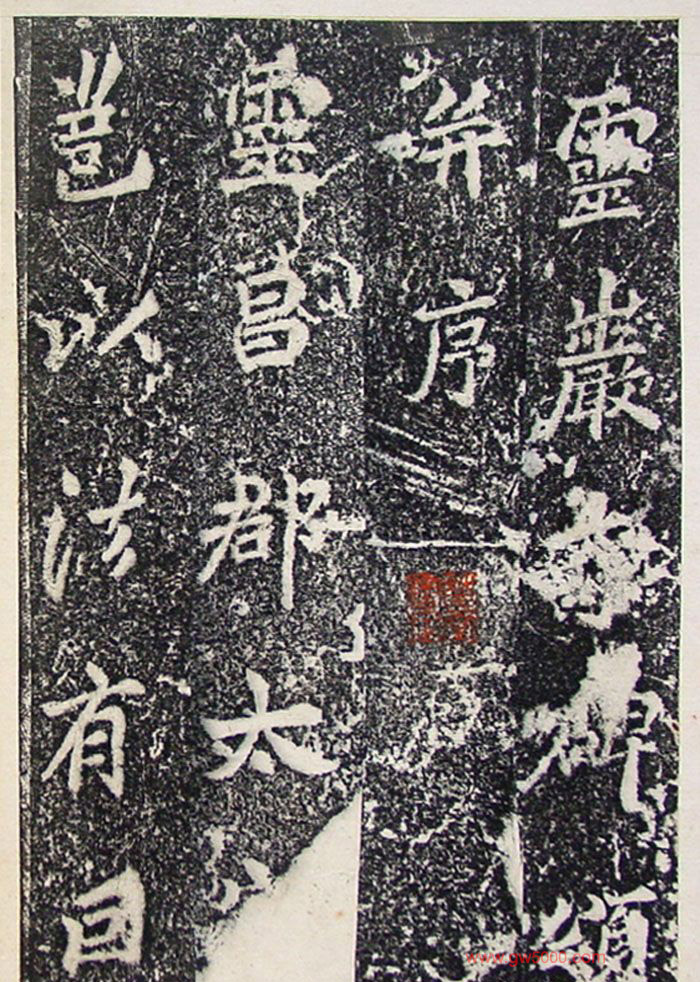 靈巖寺碑頌
并序
靈昌郡太
邕以法有因
www.gw5000.com